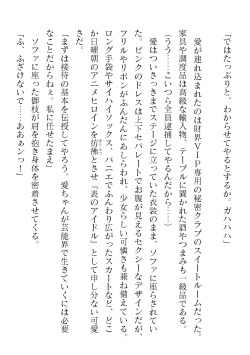 「ではたっぷりと、わからせてやるとするか、ガハハハ」
　愛が連れ込まれたのは財界ＶＩＰ専用の秘密クラブのスイートルームだった。
家具や調度品は高級な輸入物、テーブルに置かれた酒やつまみも一級品である。
（うう……こいつら全員逮捕してやるんだから……）
　愛はついさっきまでステージに立っていた衣装のまま、ソファに座らされてい
た。ピンクのドレスは上下セパレートでお腹が見えるセクシーなデザインだが、
フリルやリボンがふんだんにあしらわれ、少女らしい可憐さも兼ね備えている。
ロング手袋やサイハイソックス、パニエでふんわり広がったスカートなど、どこ
か日曜朝のアニメヒロインを彷彿とさせ「表のアイドル」として申し分ない可愛
さだ。
「まずは接待の基本を伝授してやろう。愛ちゃんが芸能界で生きていくには必要
なことだからねぇ。私に任せたまえ」
　ソファに座った御枝が肩を抱き身体を密着させてくる。
「ふ、ふざけないで……ああぁンっ！」